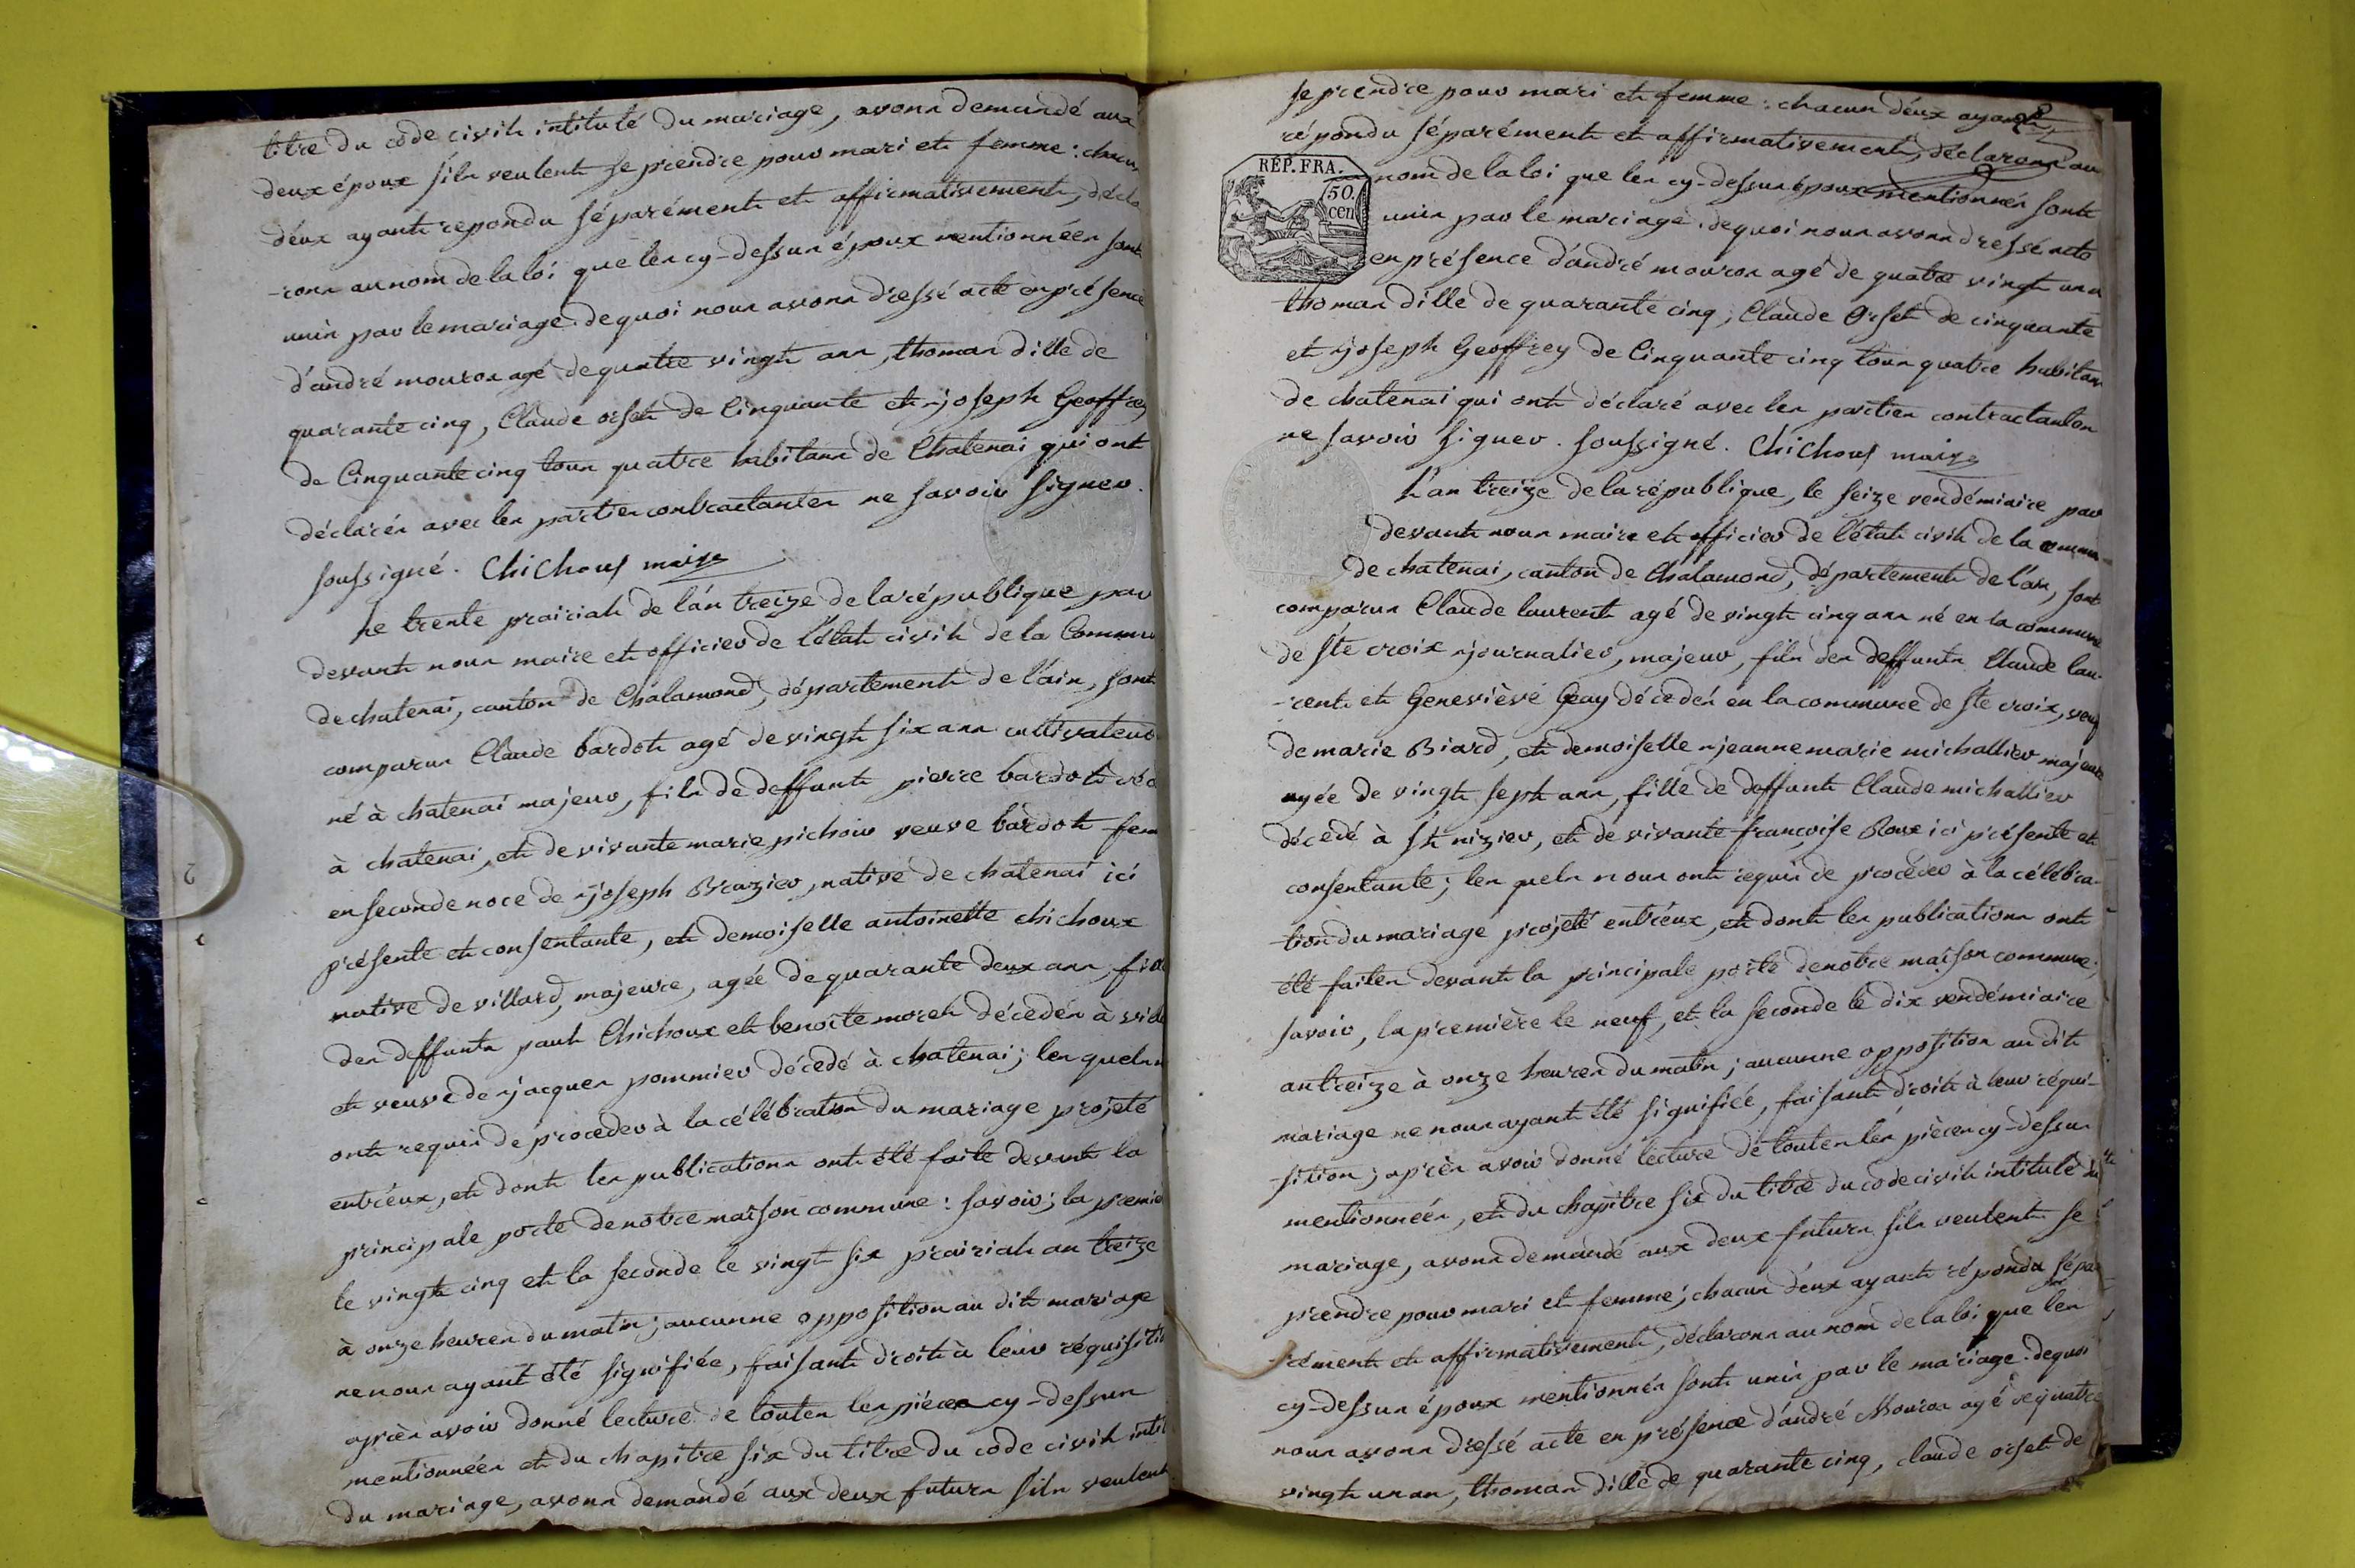 titre du code civil intitulé du mariage, avons demandé aux
deux époux s'ils veulent se prendre pour mari et femme : chacun
d'éux ayant repondu séparément et affirmativement, décla
-rons au nom de la loi que les cy-dessus époux mentionnées sont
unis par le mariage. de quoi nous avons dressé acte en présence
d'andré mouron agé de quatre vingt ans, thomas dille de
quarante cinq, Claude orset de Cinquante et joseph Geoffrey
de Cinquante cinq tous quatre habitans de Chatenai qui ont
déclarés avec les parties contractantes ne savoir signer.
soussigné. Chichoux maire
Le trente prairial de l'an treize de la république par
devant nous maire et officier de l'état civil de la Commune
de chatenai, canton de Chalamond, département de l'ain, sont
comparus Claude bardot agé de vingt six ans cultivateur
né à chatenai majeur, fils de deffunt pierre bardot décé
à chatenai, et de vivante marie pichoir veuve bardot fem
en seconde noce de joseph Brazier, native de chatenai ici
présente et consentante, et demoiselle antoinette chichoux
native de villard, majeure, agée de quarante deux ans, fille
des deffunts paul Chichoux et benoite morel décédés à villa
et veuve de jacques pommier décédé à chatenai ; les quels n
ont requis de procéder à la célébration du mariage projeté
entr'eux, et dont les publications ont été faite devant la
principale porte de notre maison commune : savoir ; la premiè
le vingt cinq et la seconde le vingt six prairial an treize
à onze heures du matin ; aucunne opposition au dit mariage
ne nous ayant été signifiée, faisant droit à leur réquisition
après avoir donné lecture de toutes les pièces cy-dessus
mentionnées et du chapitre six du titre du code civil intit
du mariage, avons demandé aux deux futurs s'ils veulent
se prendre pour mari et femme : chacun d'éux ayant
répondu séparément et affirmativement, déclarons au
RÉP. FRA.
50.
cen
nom de la loi que les cy-dessus époux mentionnés sont
unis par le mariage. de quoi nous avons dressé acte
en présence d'andré mouron agé de quatre vingt ans
thomas dille de quarante cinq, Claude Orset de cinquante
et joseph Geoffrey de Cinquante cinq tous quatre habitans
de chatenai qui ont déclaré avec les parties contractantes
ne savoir signer. soussigné. Chichoux maire
L'an treize de la république, le seize vendéminaire par
devant nous maire et officier de l'état civil de la commu-
de chatenai, canton de Chalamond, département de l'ain, sont
comparus Claude laurent agé de vingt cinq ans né en la commune
de ste croix journalier, majeur, fils des deffunts Claude lau-
-rent et Geneviève Geay décedés en la commune de ste croix, veuf
de marie Biard, et demoiselle jeanne marie michallier majeure
agée de vingt sept ans, fille de deffunt Claude michallier
décedé à st nizier, et de vivante françoise Roux ici présente et
consentante ; les quels nous ont requis de procéder à la célébra-
-tion du mariage projeté entr'éux, et dont les publications ont
été faites devant la principale porte de notre maison commune ;
savoir, la première le neuf, et la seconde le dix vendémiaire
an treize à onze heures du matin ; aucunne opposition au dit
mariage ne nous ayant été signifiée, faisant droit à leur réqui-
-sition ; après avoir donné lecture de toutes les pièces cy-dessus
mentionnées, et du chapitre six du titre du code civil intitulé du
mariage, avons demandé aux deux futurs s'ils veulent se
prendre pour mari et femme ; chacun d'éux ayant répondu sépa-
-rément et affirmativement, déclarons au nom de la loi que les
cy-dessus époux mentionnés sont unis par le mariage. de quoi
nous avons dressé acte en présence d'andré Mouron agé de quatre
vingt un an, thomas dille de quarante cinq, claude orset de